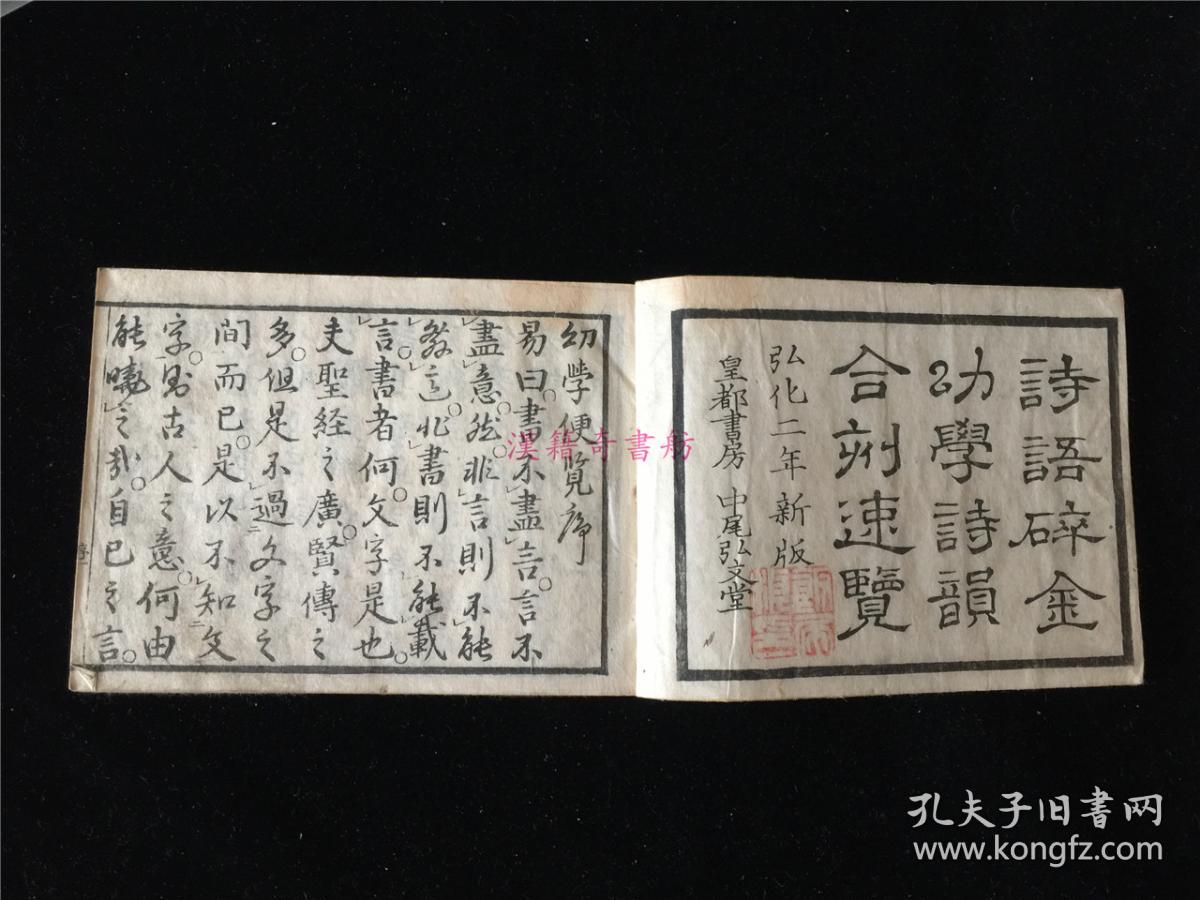 詩語碎金
幼學詩韻
合刻速覽
弘化二年新版
皇都書房 中尾弘文堂
幼學便覧序
易曰。書不盡言。言不
盡意。然非言則不能
義言。非書則不能載
言。書者何。文字是也。
夫聖経之廣。賢傳之
多。但是不過文字之
間而已。是以不知文
字。則古人之意。何由
能曉之哉。自己之言。
漢籍奇書舫
孔夫子旧書网
www.kongfz.com